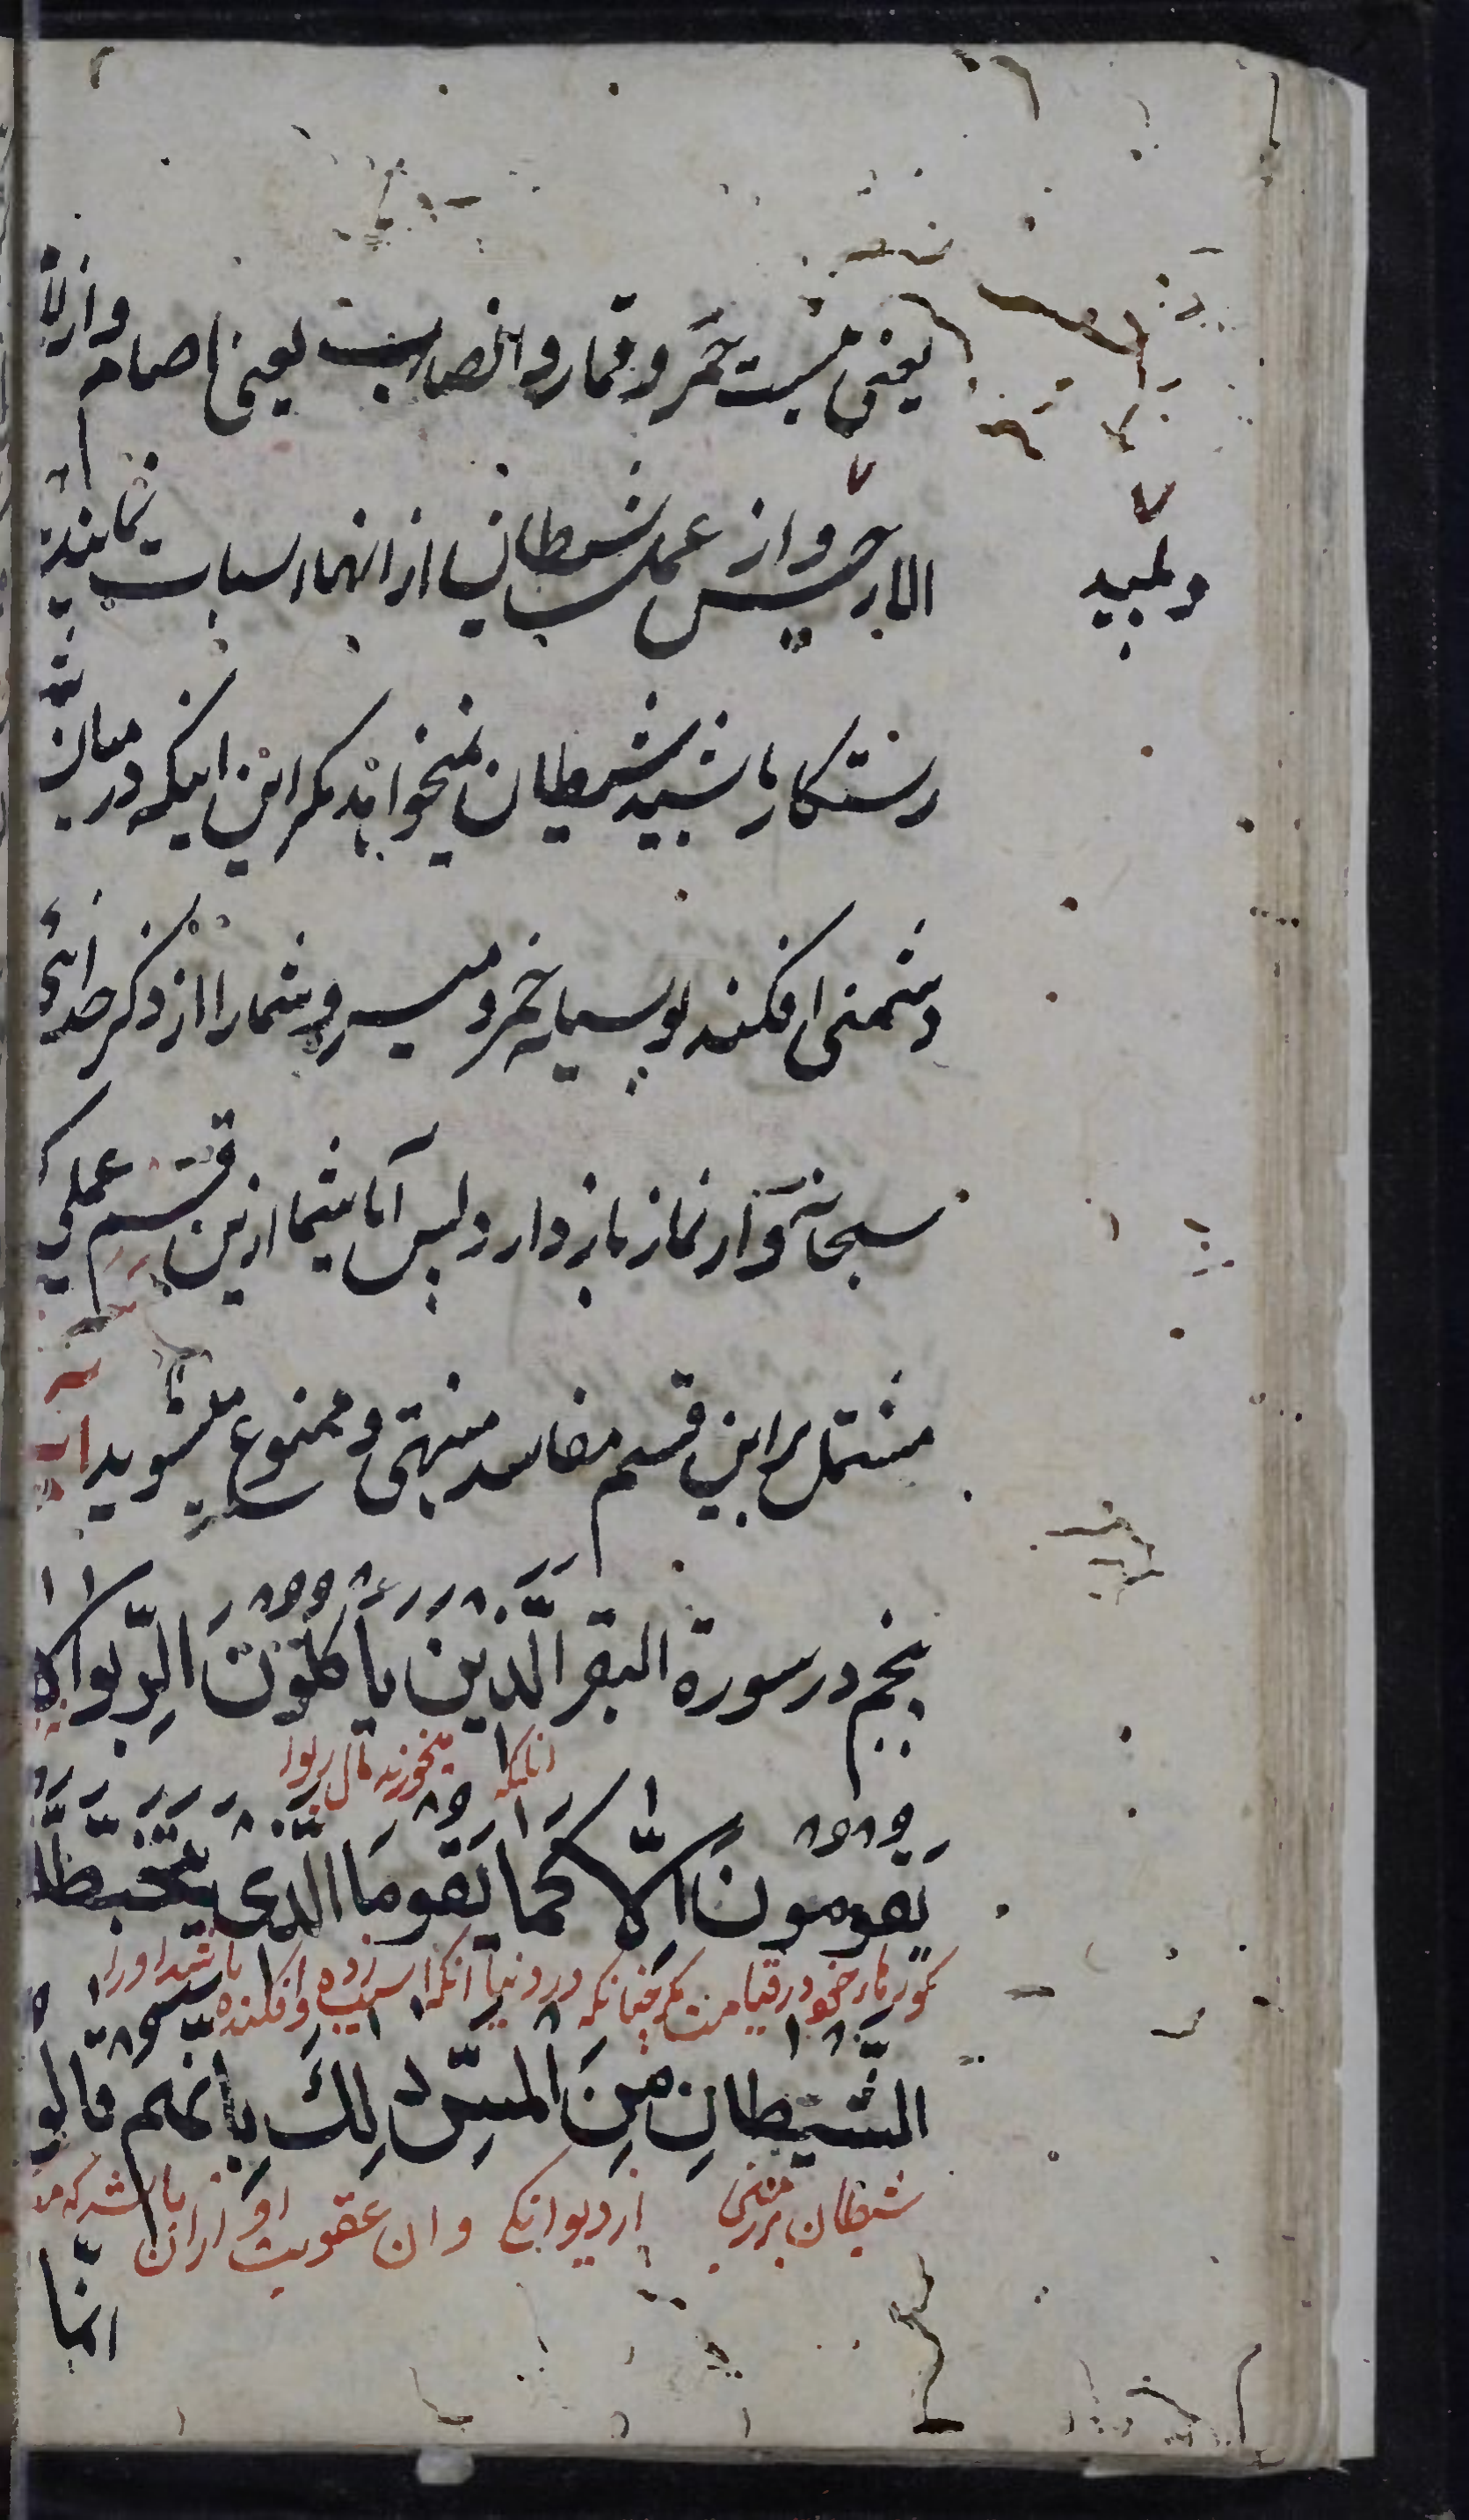 یعنی نیست خمر و قمار و انصاب یعنی اصنام و ازلام
الا رجس و از عمل شیطان پس از اینها اجتناب نمایید تا
و پلید
رستکار باشید شیطان نمیخواهد مکر این اینکه در میان شما
دشمنی افکند بوسیله خمر و میسر و شما را از ذکر خدای
سبحانه و از نماز باز دارد پس آیا شما ازین قسم عملی که
مشتمل بر این قسم مفاسد منتهی و ممنوع میشوید آیه
پنجم در سورة البقر الَّذین یاکلونَ الرِّبوا لا
انانکه میخورند مال ربوا
یَقومونَ الّا کَما یَقومُ الَّذی یتخبّطهُ
کورهاء خود در قیامت مکر چنانکه در دنیا انکه اسیب زده و افکنده باشد او را
الشّیطانِ مِنَ المسِّ ذلِكَ بِانّهم قالوا
شیطان بر زمین از دیوانکی و ان عقوبت او ازان باشد که
انّما